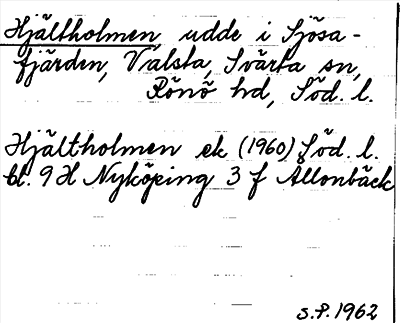 Hjältholmen udde i Sjösa-
fjärden, Valsta, Svärta sn,
Rönö hd, Söd. l.
Hjältholmen ek (1960) Söd. l.
bl. 9 H Nyköping 3 f Ållonbäck
S.P. 1962